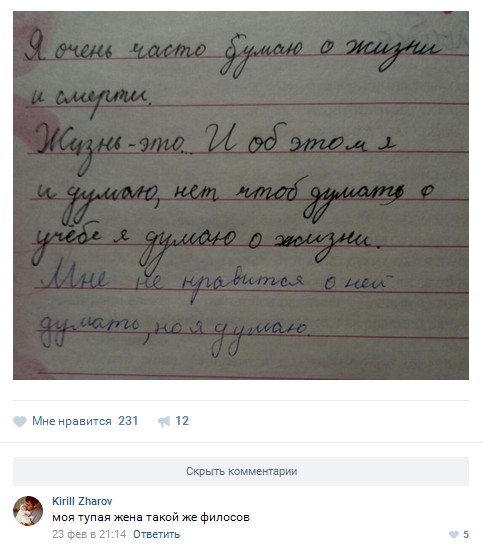 Я очень часто думаю о жизни
и смерти.
Жузнь-это.. И об этом я
и думаю, нет чтоб думать о
учёбе я думаю о жизни.
Мне не нравится о ней
думать, но я думаю.
Мне нравится 231 12
Скрыть комментарии
Kirill Zharov
моя тупая жена такой же филосов
23 фев в 21:14 Ответить 5